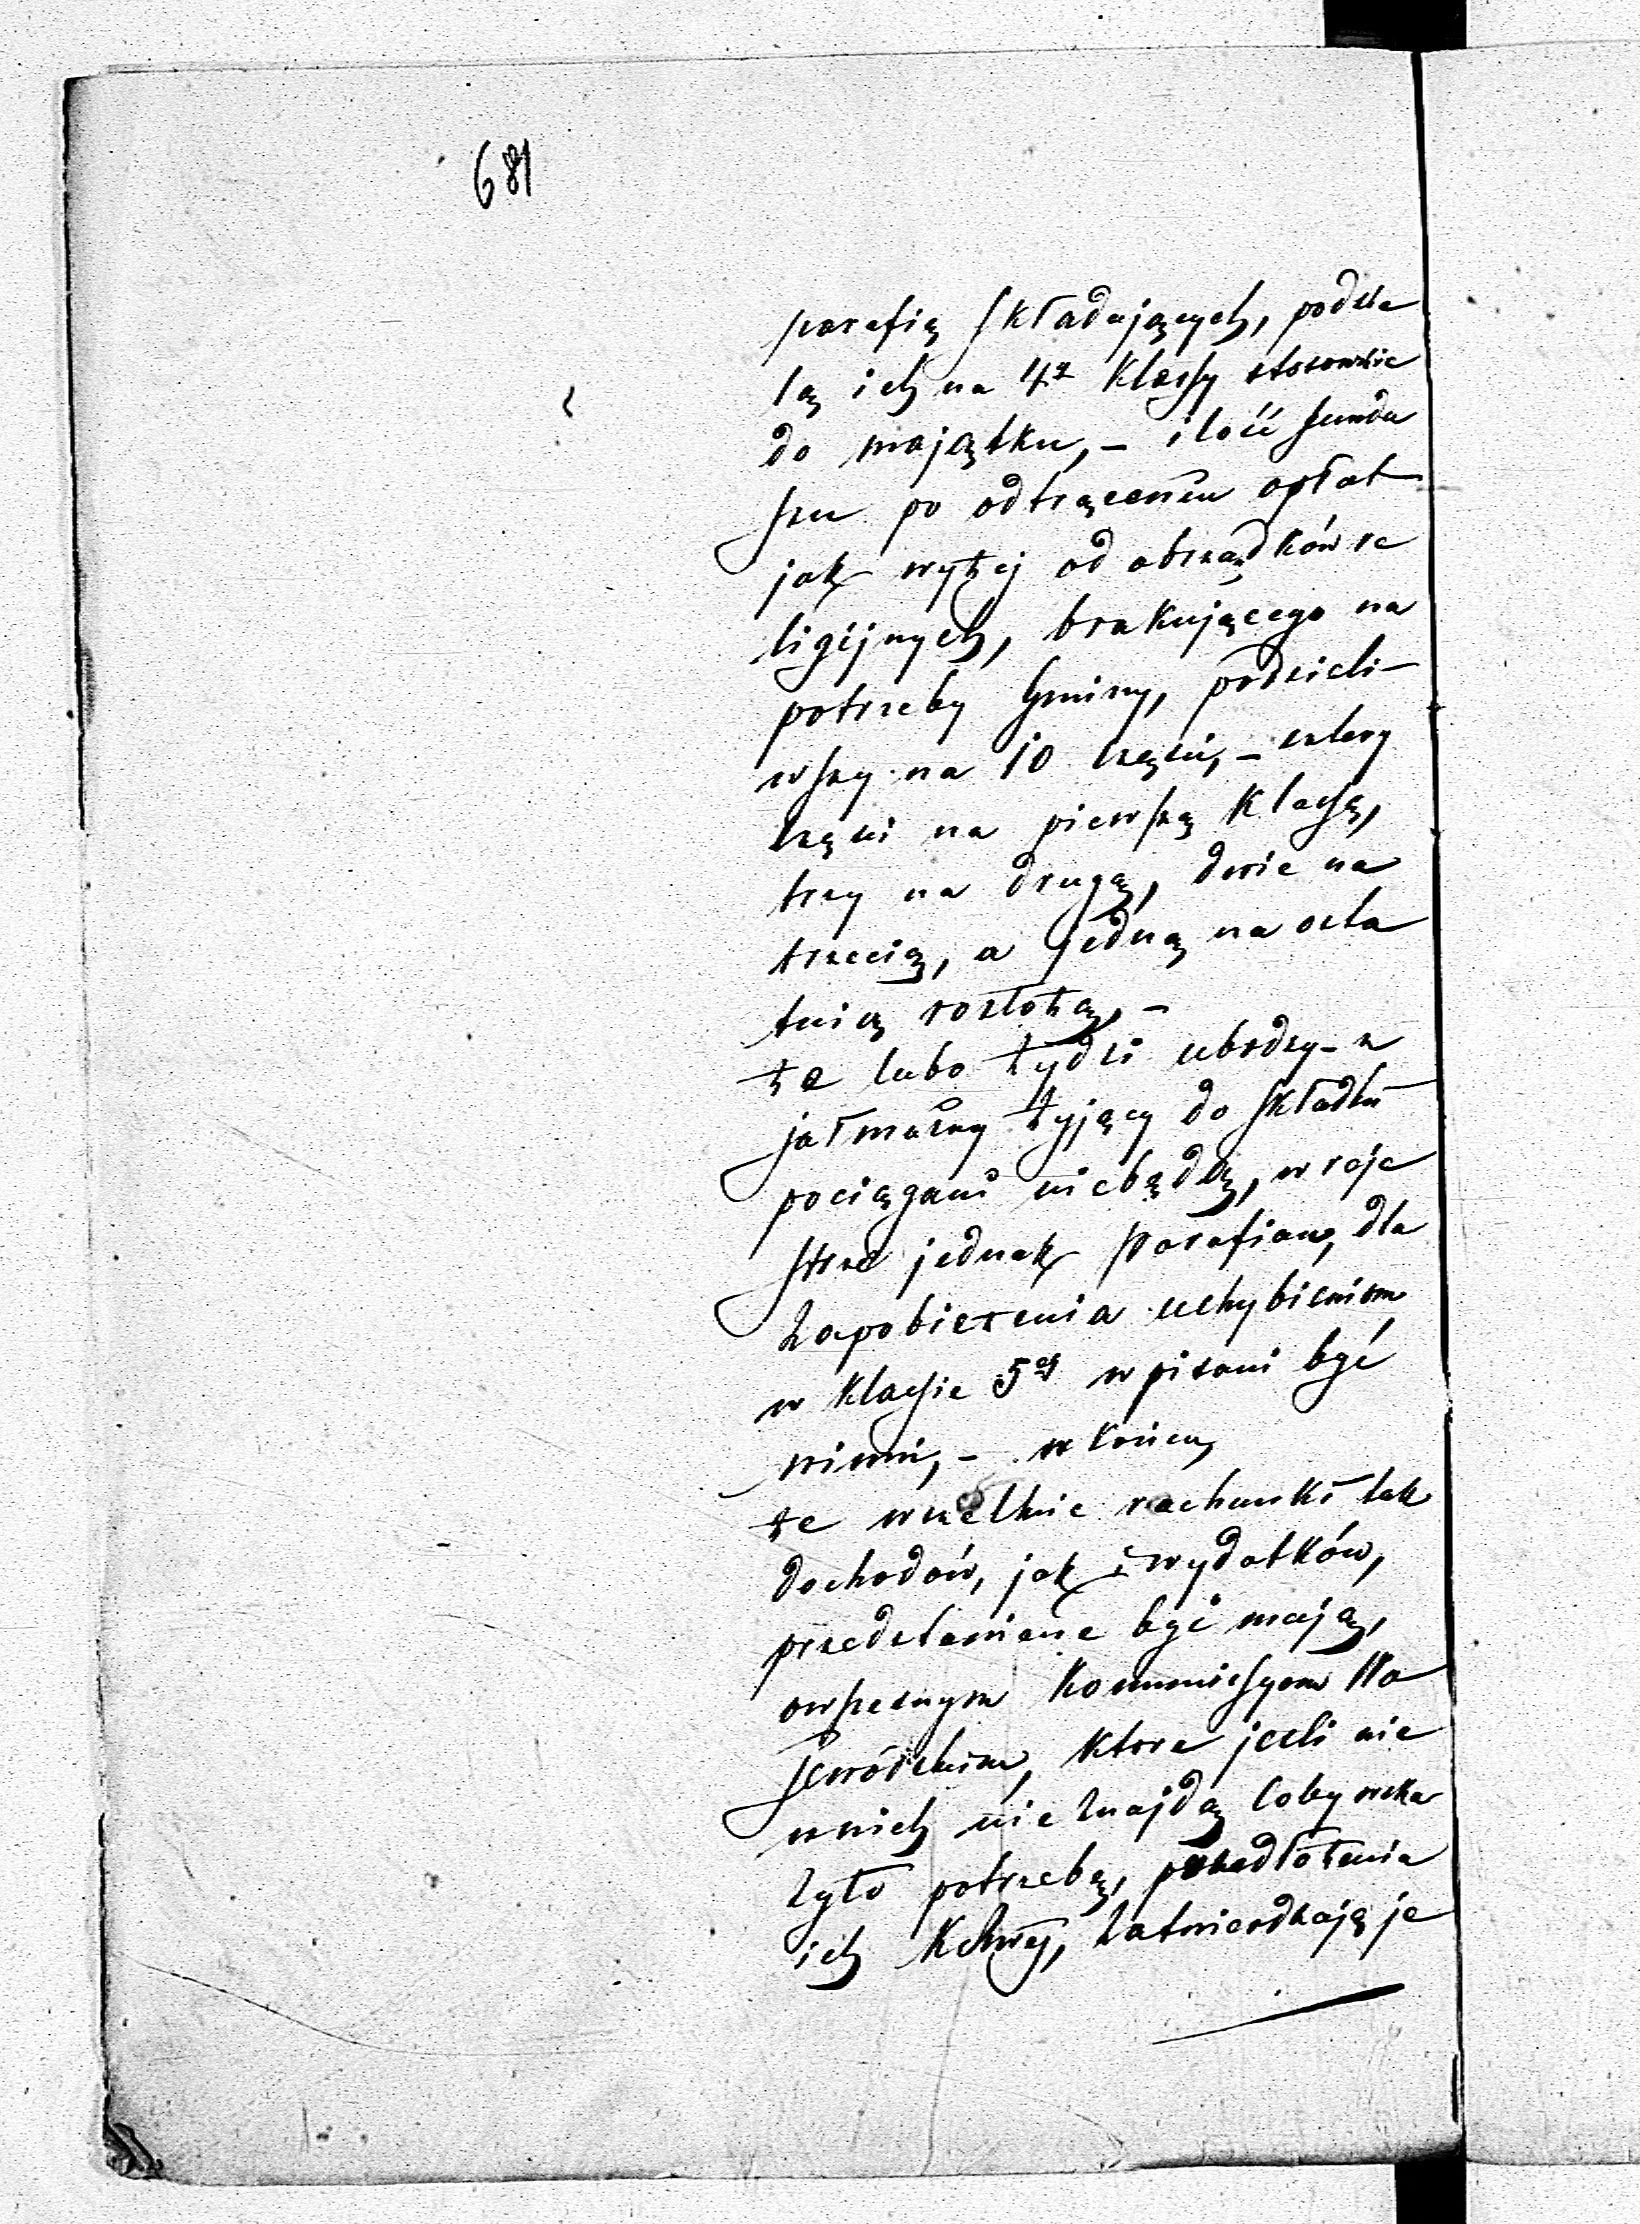 681
parafią składających, podzie
lą ich na 4ry klassy stosownie
do majątku, – ilość fundu
szu po odtrąceniu opłat
jak wyżej od obrządków re
ligijnych, brakującego na
potrzeby Gminy, podzieli-
wszy na 10 części, – cztery
części na pierwszą klassę,
trzy na drugą, dwie na
trzecią, a jedną na osta
tnią rozłożą, –
że lubo żydzi ubodzy – z
jałmużny żyjący do składki
pociągani niebędą, w reje
strze jednak parafian, dla
zapobieżenia uchybieniom
w klassie 5ej wpisani być
winni, – w końcu,
że wszelkie rachunki tak
dochodów, jak i wydatków,
przedstawiane być mają,
owszesnym Kommissyom Wo
jewódzkim, które jeśli nie
wnich nie znajdą coby wska
zyło potrzebę, przedłożenia
ich KRWej, zatwierdzają je